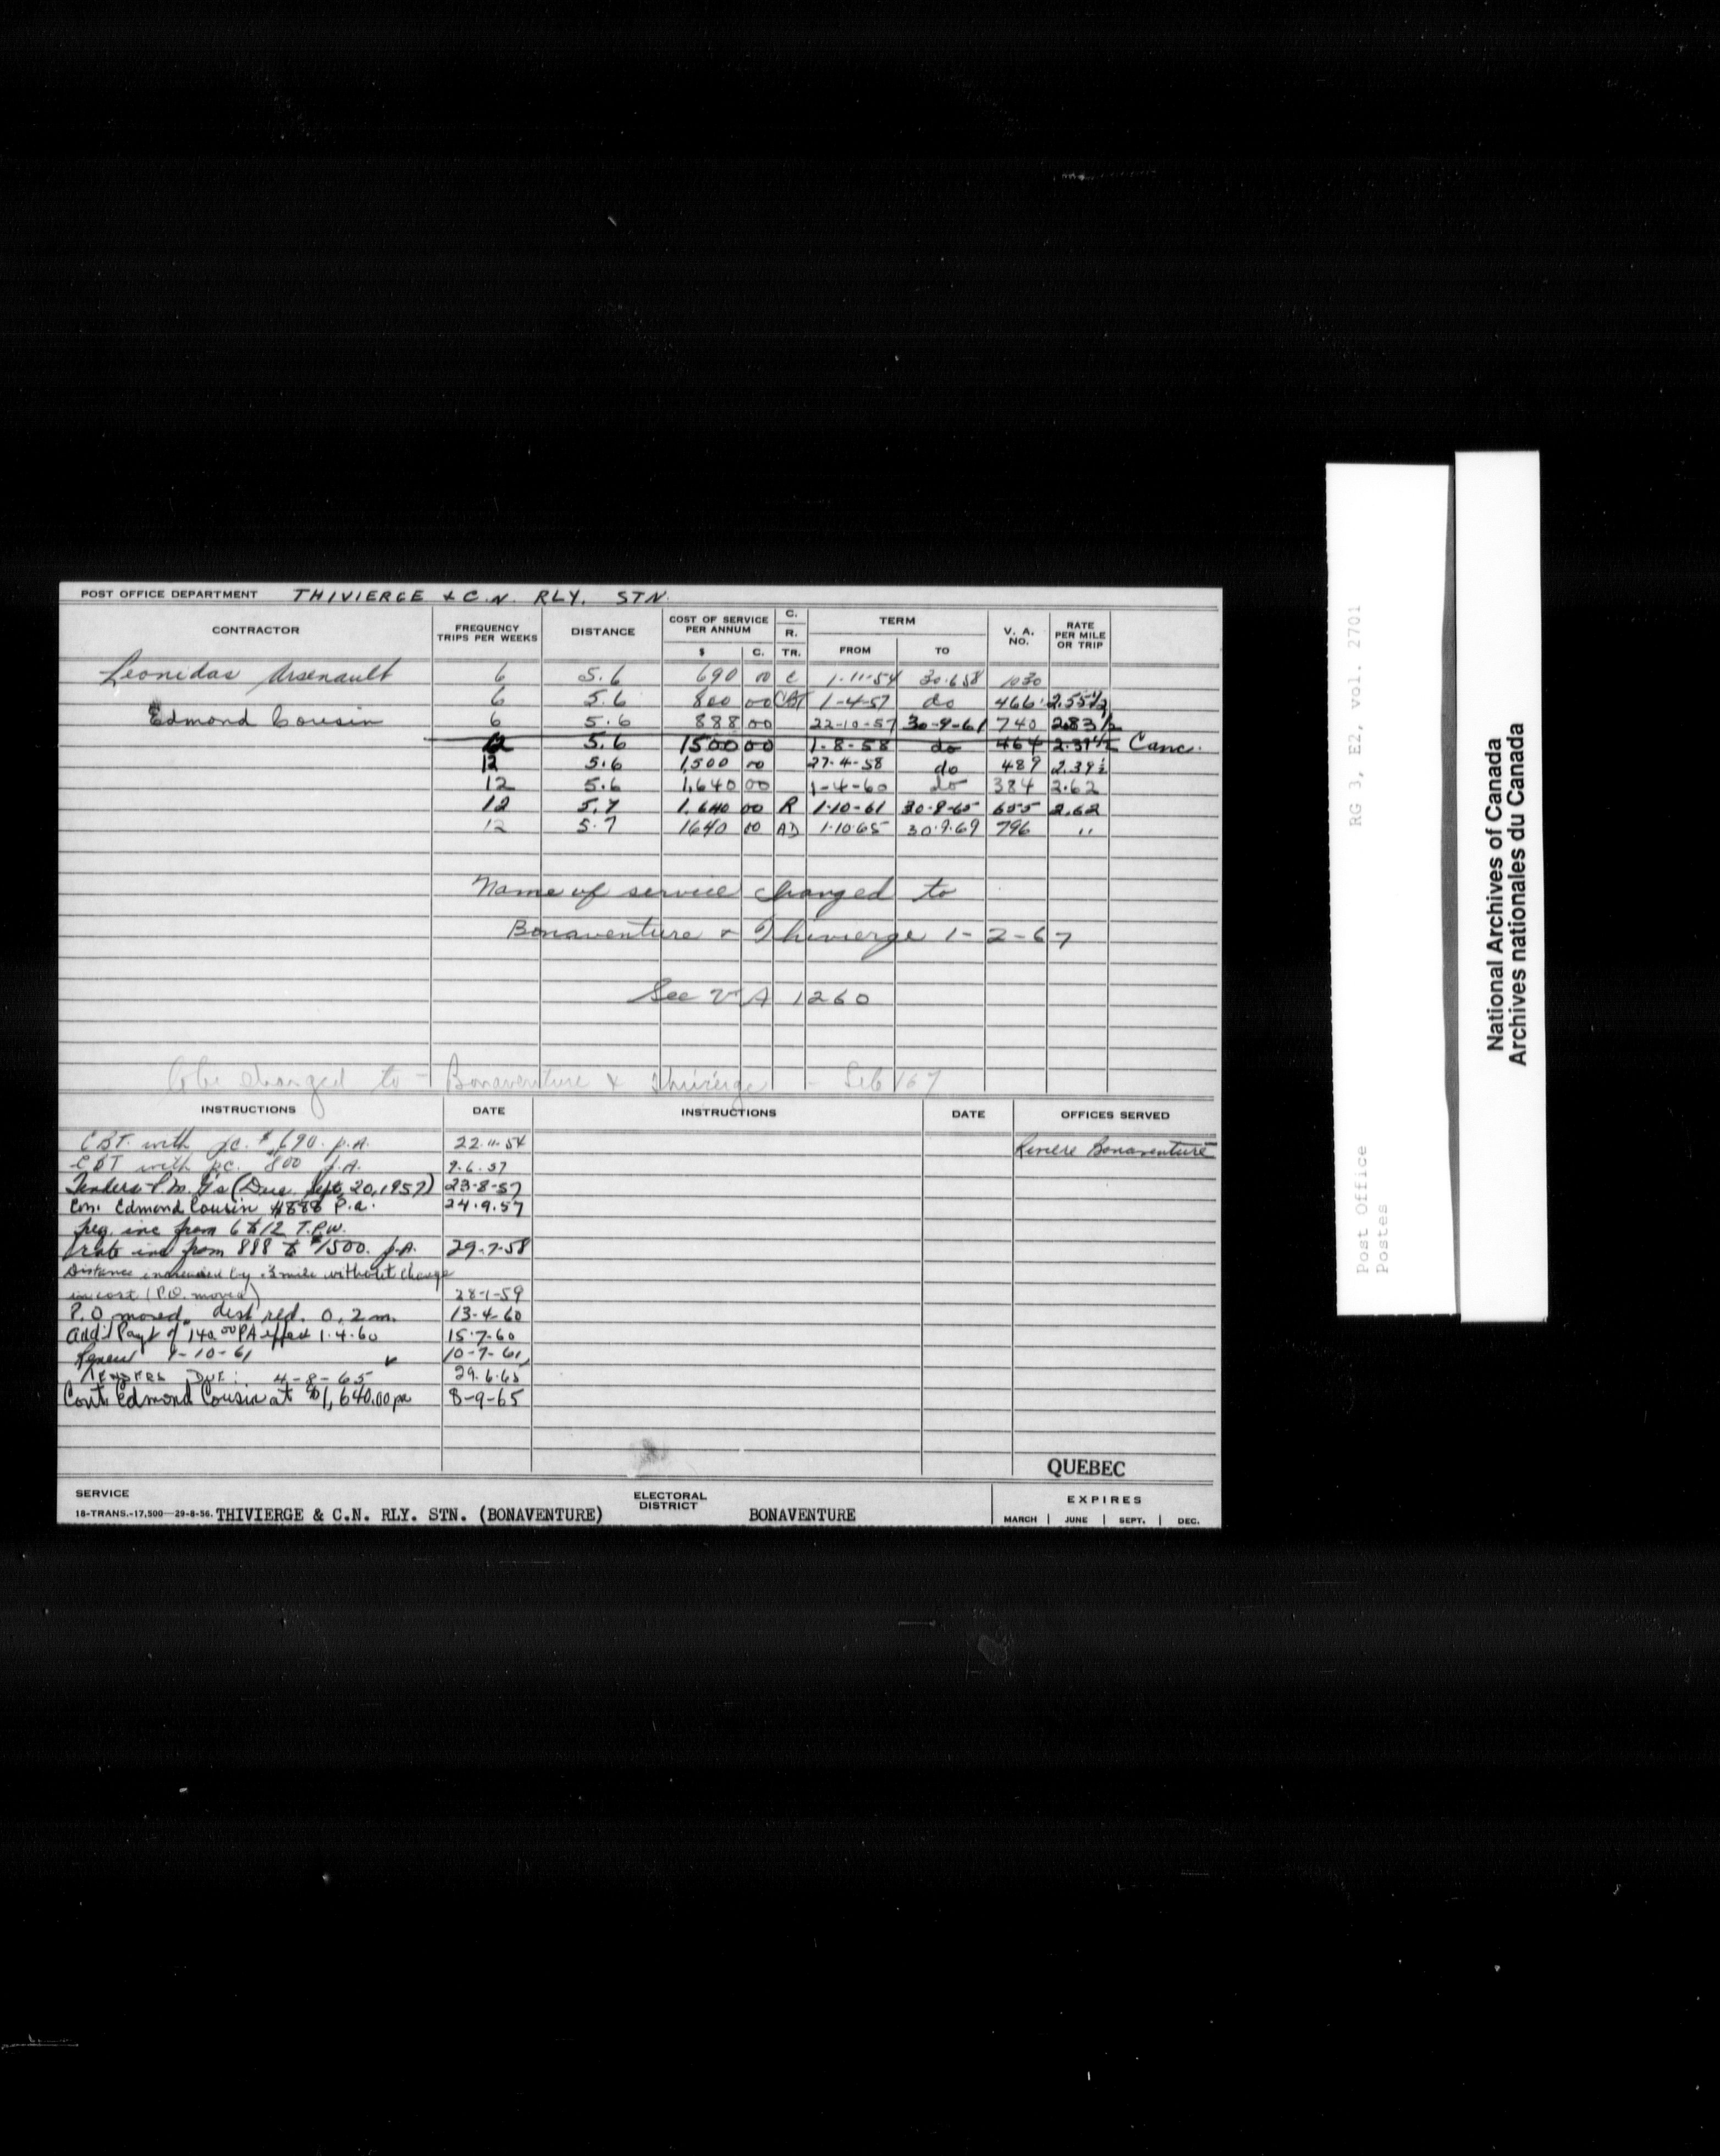 POST OFFICE DEPARTMENT THIVIERGE & C.N. RLY. STN.
CONTRACTOR FREQUENCY TRIPS PER WEEKS DISTANCE COST OF SERVICE PER ANNUM $ C. C. R. TR. TERM FROM TO V. A. NO. RATE PER MILE OR TRIP
Leonidas Arsenault 6 5.6 690 00 C 1-11-54 30.6.58 1030
6 5.6 800 00 CBT 1-4-57 do 466 2.55½
Edmond Cousin 6 5.6 888 00 22-10-57 30-9-61 740 2.83½
12 5.6 1500 00 1-8-58 do 464 2.39½ Canc.
12 5.6 1,500 00 27-4-58 do 489 2.39½
12 5.6 1,640 00 1-4-60 do 384 2.62
12 5.7 1,640 00 R 1-10-61 30-9-65 655 2.62
12 5.7 1640 00 AD 1-10-65 30.9.69 796 "
Name of service changed to
Bonaventure & Thivierge 1-2-67
See V A 1260
To be changed to - Bonaventure & Thivierge - Feb 1/67
INSTRUCTIONS DATE INSTRUCTIONS DATE OFFICES SERVED
CBT. with pc. $690. p.a. 22.11.54 Riviere Bonaventure
CBT with pc. 800 p.a. 9.6.57
Tenders P.M. G's (Due Sept. 20, 1957) 23-8-57
Con. Edmond Cousin $888 P.a. 24.9.57
freq. inc from 6 to 12 T.P.W.
rate inc from 888 to $1500. p.a. 29-7-58
Distance increased by .3 mile without change
in cost (P.O. moved) 28-1-59
P.O moved. dist red. 0.2 m. 13-4-60
Add'l Payt of 140.00 PA effect 1.4.60 15-7-60
Renew 1-10-61 10-7-61
TENDERS DUE: 4-8-65 29.6.65
Cont. Edmond Cousin at $1,640.00 pa 8-9-65
QUEBEC
SERVICE ELECTORAL DISTRICT EXPIRES
18-TRANS.-17,500—29-8-56. THIVIERGE & C.N. RLY. STN. (BONAVENTURE) BONAVENTURE MARCH | JUNE | SEPT. | DEC.
Post Office RG 3, E2, vol. 2701
Postes
National Archives of Canada
Archives nationales du Canada